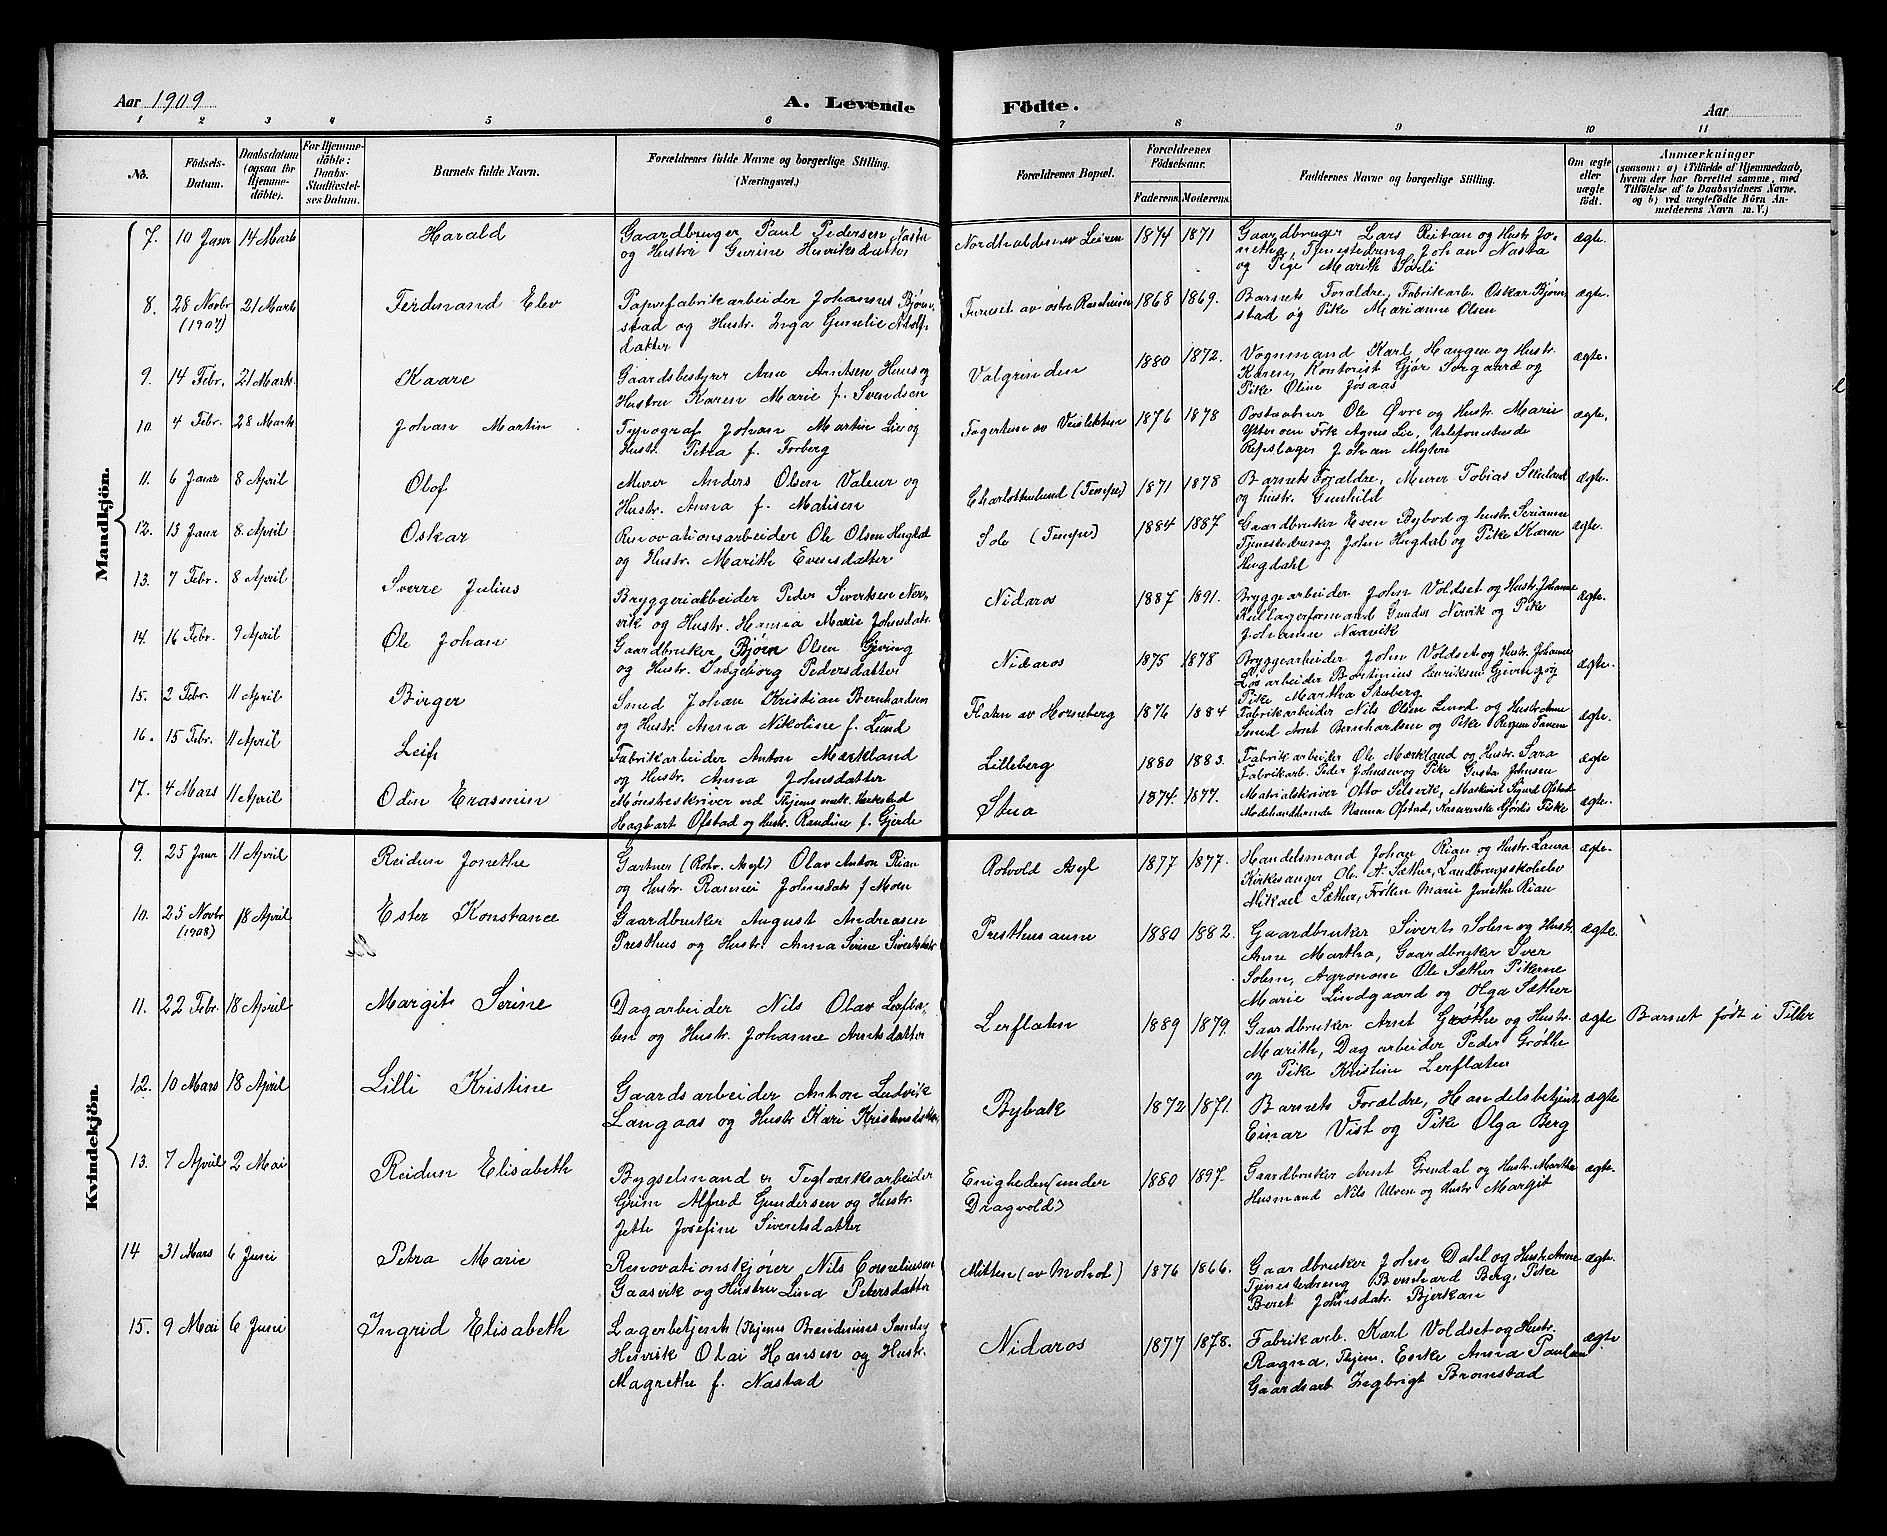 Aar 1909
A. Levende Födte.
Aar
1 2 3 4 5 6 7 8 9 10 11
No.
Födsels-Datum.
Daabsdatum (ogsaa för Hjemmedöbte).
For Hjemmedöbte: Daabs-Stadfæstelses Datum.
Barnets fulde Navn.
Forældrenes fulde Navne og borgerlige Stilling. (Næringsvei.)
Forældrenes Bopæl.
Forældrenes Födselsaar.
Faderens. Moderens.
Faddernes Navne og borgerlige Stilling.
Om ægte eller uægte født.
Anmærkninger
(saasom: a) i Tilfælde af Hjemmedaab,
hvem der har forrettet samme, med
Tilföielse af to Daabsvidners Navne.
og b) ved uægtefödte Börn An-
melderens Navn m. V.)
Mandkjön.
7. 10 Janr 14 Marts Harald
Gaardbruger Paul Pedersen
og Hustru Gurine Henriksdatter
1874 1871
Gaardbruger Lars Reitan og Hustr. Jo-
netha, Tjenestedreng Johan Nasta
og Pige Marith Sørli
ægte.
8. 28 Novbr (1907) 21 Marts Ferdinand Elev
Papirfabrikarbeider Johannes Bjørn-
stad og Hustr. Inga Gunelie Adolf-
datter
1868 1869.
Barnets Forældre, Fabrikarb. Oskar Bjørn
stad og Pike Marianne Olsen
ægte.
9. 14 Febr. 21 Marts. Kaare
Gaardsbestyrer Arne Arntsen
Hustru Karen Marie f. Svendsen
Valgrinden
1880 1872.
Vognmand Karl Haugen og Hustr.
Karen, Kontorist
Pike Oline Jøsaas
ægte.
10. 4 Febr. 28 Marts Johan Martin
Typograf Johan Martin Lie og
Hustr. Petra f. Forberg
1876 1878
Ole Øvre og Hustr. Marie
Frk Agnes Lie,
Johan
ægte.
11. 6 Janr 8 April Olof
Murer Anders Olsen Valeur og
Hustr. Anna f. Matisen
Charlottenlund (Tempe)
1871 1878
Barnets Forældre, Murer Tobias
og hustr. Gunhild
ægte.
12. 13 Janr 8. April Oskar
Renovationsarbeider Ole Olsen Hugdal
og Hustr. Marith Evensdatter
(Tempe)
1884 1887
Gaardbruker Even Bybod og hustr. Serianna
Tjenestedreng John Hugdal og Pike Karen
Hugdahl
ægte.
13. 7 Febr. 8 April Sverre Julius
Bryggeriarbeider Peder Sivertsen Ner-
vik og Hustr. Hanna Marie Johnsdatr.
Nidaros
1887 1891.
Bryggearbeider John Voldset og Hustr. Johanne
Gunder Nervik og Pike
Johanne
ægte.
14. 16 Febr. 9 April Ole Johan
Gaardbruker Bjørn Olsen Gjeving
og Hustr. Ingeborg Pedersdatter
Nidaros
1875 1878
Bryggearbeider John Voldset og Hustr. Johanne
Løsarbeider Henriksen Gjeving og
Pike Martha Stuberg
ægte.
15. 2 Febr. 11 April Birger
Smed Johan Kristian Bernhardsen
og Hustr. Anna Nikoline f. Lund
Flaten av Horneberg
1876 1884
Fabrikarbeider Nils Olsen Lund og Hustr. Anne
Smed Arnt Bernhardsen og Pike
ægte.
16. 15 Febr. 11 April Leif
Fabrikarbeider Anton Markland
og Hustr. Anna Johnsdatter
Lilleberg
1880 1883.
Fabrikarbeider Ole Markland og Hustr. Sara
Fabrikarb. Peder Johnsen og Pike Gusta Johnsen
ægte
17. 4 Mars 11 April Odin Erasmin
Mønsterskriver ved Thjems mek. Verksted
Hagbart Ofstad og Hustr. Randine f. Gjerde
Stua
1874. 1877.
Materialskriver Otto Selsvik, Maskinist Sigurd Ofstad
Modehandlerinde Nanna Ofstad, Kasererske Hjørdis Fiske
ægte.
Kvindekjön.
9. 25 Janr 11 April Reidun Jonethe
Gartner (Rotv. Asyl) Olav Anton Rian
og Hustr. Rannei Johnsdatr f Moen
Rotvold Asyl
1877 1877.
Handelsmand Johan Rian og Hustr. Laura
Kirkesanger Ole A. Sæther, Landbrugsskoleelev
Mikael Sæther, Frøken Marie Jonethe Rian
ægte.
10. 25 Novbr (1908) 18 April Ester Konstance
Gaardbruker August Andreasen
Presthus og Hustr. Anna Serine Sivertsdatr
Presthusaune
1880 1882.
Gaardbruker Sivert Solem og Hustr.
Anne Martha, Gaardbruker Iver
Solem, Agronom Ole Sæther Pikerne
Marie Lindgaard og Olga Sæther
ægte.
11. 22 Febr. 18 April Margit Serine
Dagarbeider Nils Olav Lerfla-
ten og Hustr. Johanne Arntsdatter
Lerflaten
1889 1879.
Gaardbruker Arnt Grøthe og Hustr.
Marith, Dagarbeider Peder Grøthe
og Pike Kristine Lerflaten
ægte
Barnet født i Tiller
12. 10 Mars 18 April Lilli Kristine
Gaardsarbeider Anton Ludvik
Langaas og Hustr Kari Kristensdatter
Bybak
1872 1871.
Barnets Forældre, Handelsbetjent
Einar Vist og Pike Olga Berg
ægte
13. 7 April 2 Mai Reidun Elisabeth
Bygselmand & Teglværksarbeider
Grim Alfred Gundersen og Hustr.
Jette Josefine Sivertsdatter
Enigheden (under
Dragvold)
1880 1897.
Gaardbruker Arnt Grendal og Hustr. Martha
Husmand Nils Ulven og Hustr Margit
ægte.
14 31 Mars 6 Juni Petra Marie
Renovationskjører Nils Corneliusen
Gaasvik og Hustru Lina Petersdatter
Mitten (av Moholt)
1876 1866.
Gaardbruker John Dahl og Hustr. Anne
Tjenestedreng Bernhard Berg, Pike
Beret Johnsdatr. Bjerkan
ægte.
15. 9 Mai 6 Juni Ingrid Elisabeth
Lagerbetjent (Thjems Brænderi)
Henrik Olai Hansen og Hustr.
Magrethe f. Nastad
Nidaros
1877 1878.
Fabrikarb. Karl Voldset og Hustr.
Ragna, Thjem. Enke Anna Paulsen
Gaardsarb Ingbrigt Bromstad
ægte.